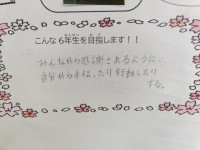 こんな6年生を目指します!!
みんなから感謝されるように、
自分から手伝ったり行動したり
する。